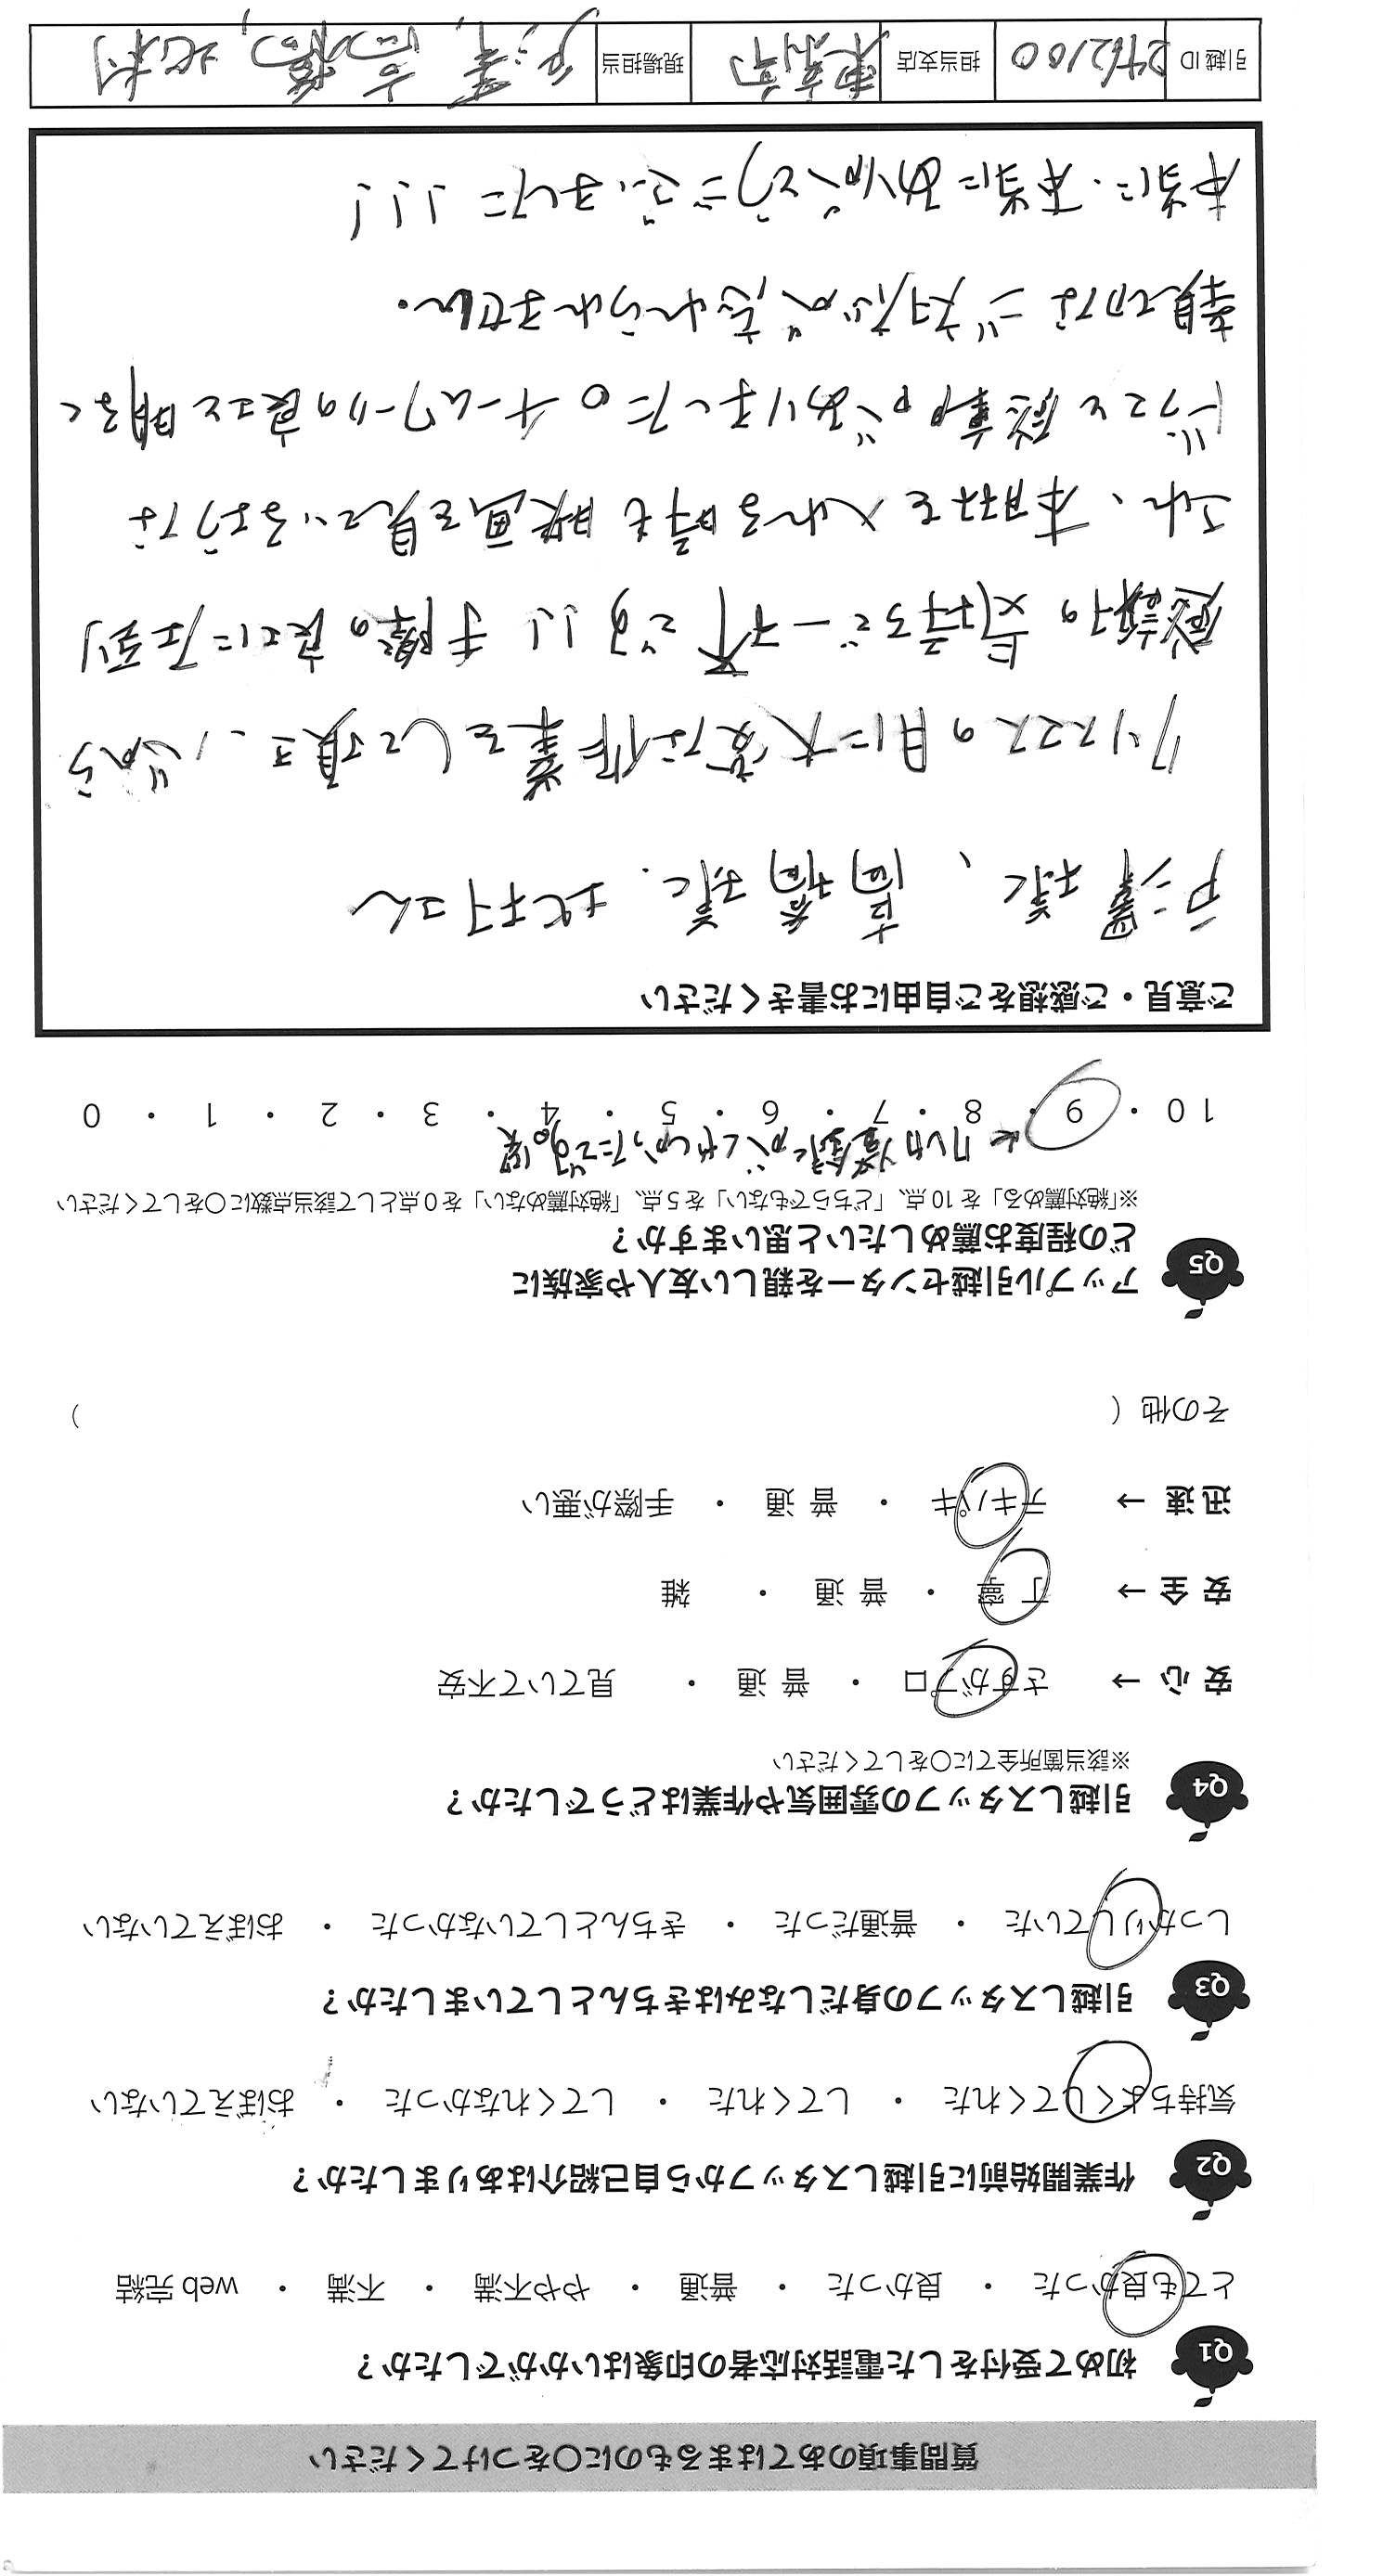 質問事項のあてはまるものに○をつけてください
Q1 初めて受付をした電話対応者の印象はいかがでしたか？
とても良かった ・ 良かった ・ 普通 ・ やや不満 ・ 不満 ・ web 完結
Q2 作業開始前に引越しスタッフから自己紹介はありましたか？
気持ちよくしてくれた ・ してくれた ・ してくれなかった ・ おぼえていない
Q3 引越しスタッフの身だしなみはきちんとしていましたか？
しっかりしていた ・ 普通だった ・ きちんとしていなかった ・ おぼえていない
Q4 引越しスタッフの雰囲気や作業はどうでしたか？
※該当箇所全てに○をしてください
安 心 → さすがプロ ・ 普 通 ・ 見ていて不安
安 全 → 丁 寧 ・ 普 通 ・ 雑
迅 速 → テキパキ ・ 普 通 ・ 手際が悪い
その他（ ）
Q5 アップル引越センターを親しい友人や家族に
どの程度お薦めしたいと思いますか？
※「絶対薦める」を 10 点、「どちらでもない」を 5 点、「絶対薦めない」を 0 点として該当点数に○をしてください
10 ・ 9 ・ 8 ・ 7 ・ 6 ・ 5 ・ 4 ・ 3 ・ 2 ・ 1 ・ 0
ご意見・ご感想をご自由にお書きください
戸澤様、高橋様、北村さん
クリスマスの日に大変な作業をして頂き、心から
感謝の気持ちで一杯です!! 手際の良さに圧倒
され、本棚を入れる時も映画を見ているような
ドラマと感動がありました。チームワークの良さと明るく
親切なご対応が忘れられません。
本当に、本当にありがとうございました!!!
引越 ID 2462100 担当支店 東京南 現場担当 戸澤, 高橋, 北村